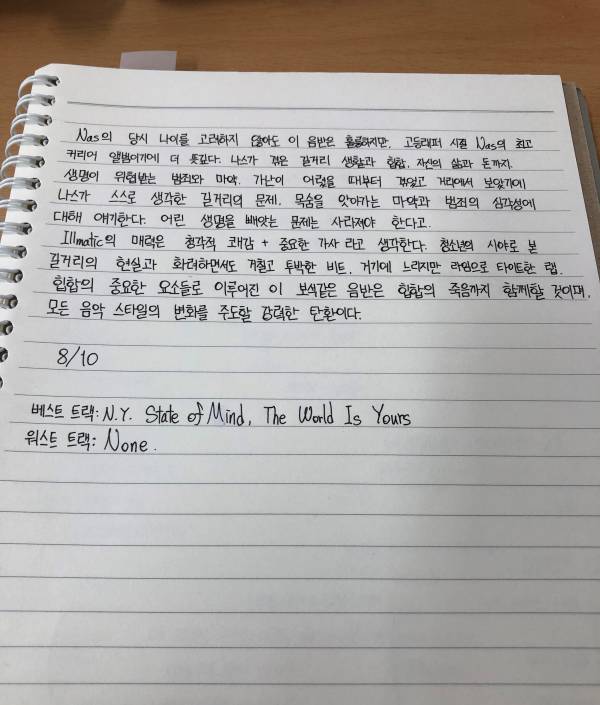 Nas의 당시 나이를 고려하지 않아도 이 음반은 훌륭하지만, 고등래퍼 시절 Nas의 최고
커리어 앨범이기에 더 뜻깊다. 나스가 겪은 길거리 생활과 힙합, 자신의 삶과 돈까지.
생명이 위협받는 범죄와 마약, 가난이 어렸을 때부터 겪었고 거리에서 보았기에
나스가 스스로 생각한 길거리의 문제, 목숨을 앗아가는 마약과 범죄의 심각성에
대해 얘기한다. 어린 생명을 빼앗는 문제는 사라져야 한다고.
Illmatic의 매력은 청각적 쾌감 + 중요한 가사 라고 생각한다. 청소년의 시야로 본
길거리의 현실과 화려하면서도 거칠고 투박한 비트, 거기에 느리지만 라임으로 타이트한 랩.
힙합의 중요한 요소들로 이루어진 이 보석같은 음반은 힙합의 죽음까지 함께할 것이며,
모든 음악 스타일의 변화를 주도할 강력한 탄환이다.
8/10
베스트 트랙: N.Y. State of Mind, The World Is Yours
워스트 트랙: None.